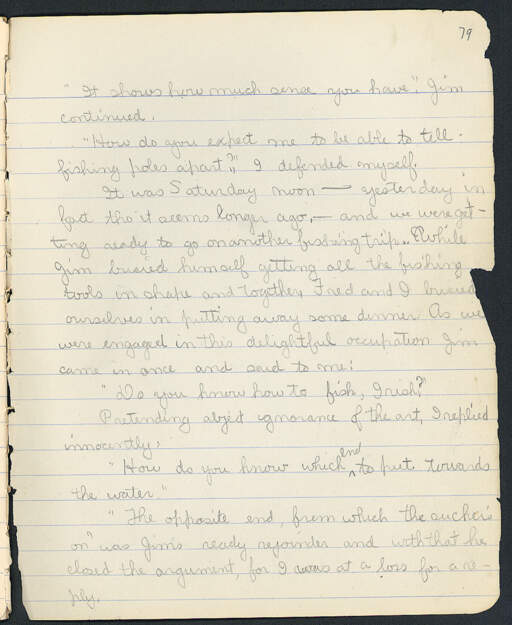 79
"It shows how much sense you have", Jim
continued.
"How do you expect me to be able to tell
fishing poles apart?" I defended myself.
It was Saturday noon — yesterday in
fact tho it seems longer ago, — and we were get-
ting ready to go on another fishing trip. While
Jim busied himself getting all the fishing
tools in shape and together, Fred and I busied
ourselves in putting away some dinner. As we
were engaged in this delightful occupation Jim
came in once and said to me:
"Do you know how to fish, Irish?"
Pretending abject ignorance of the art, I replied
innocently,
"How do you know which end to put towards
the water"
"The opposite end, from which the sucker's
on" was Jim's ready rejoinder and with that he
closed the argument, for I was at a loss for a re-
ply.